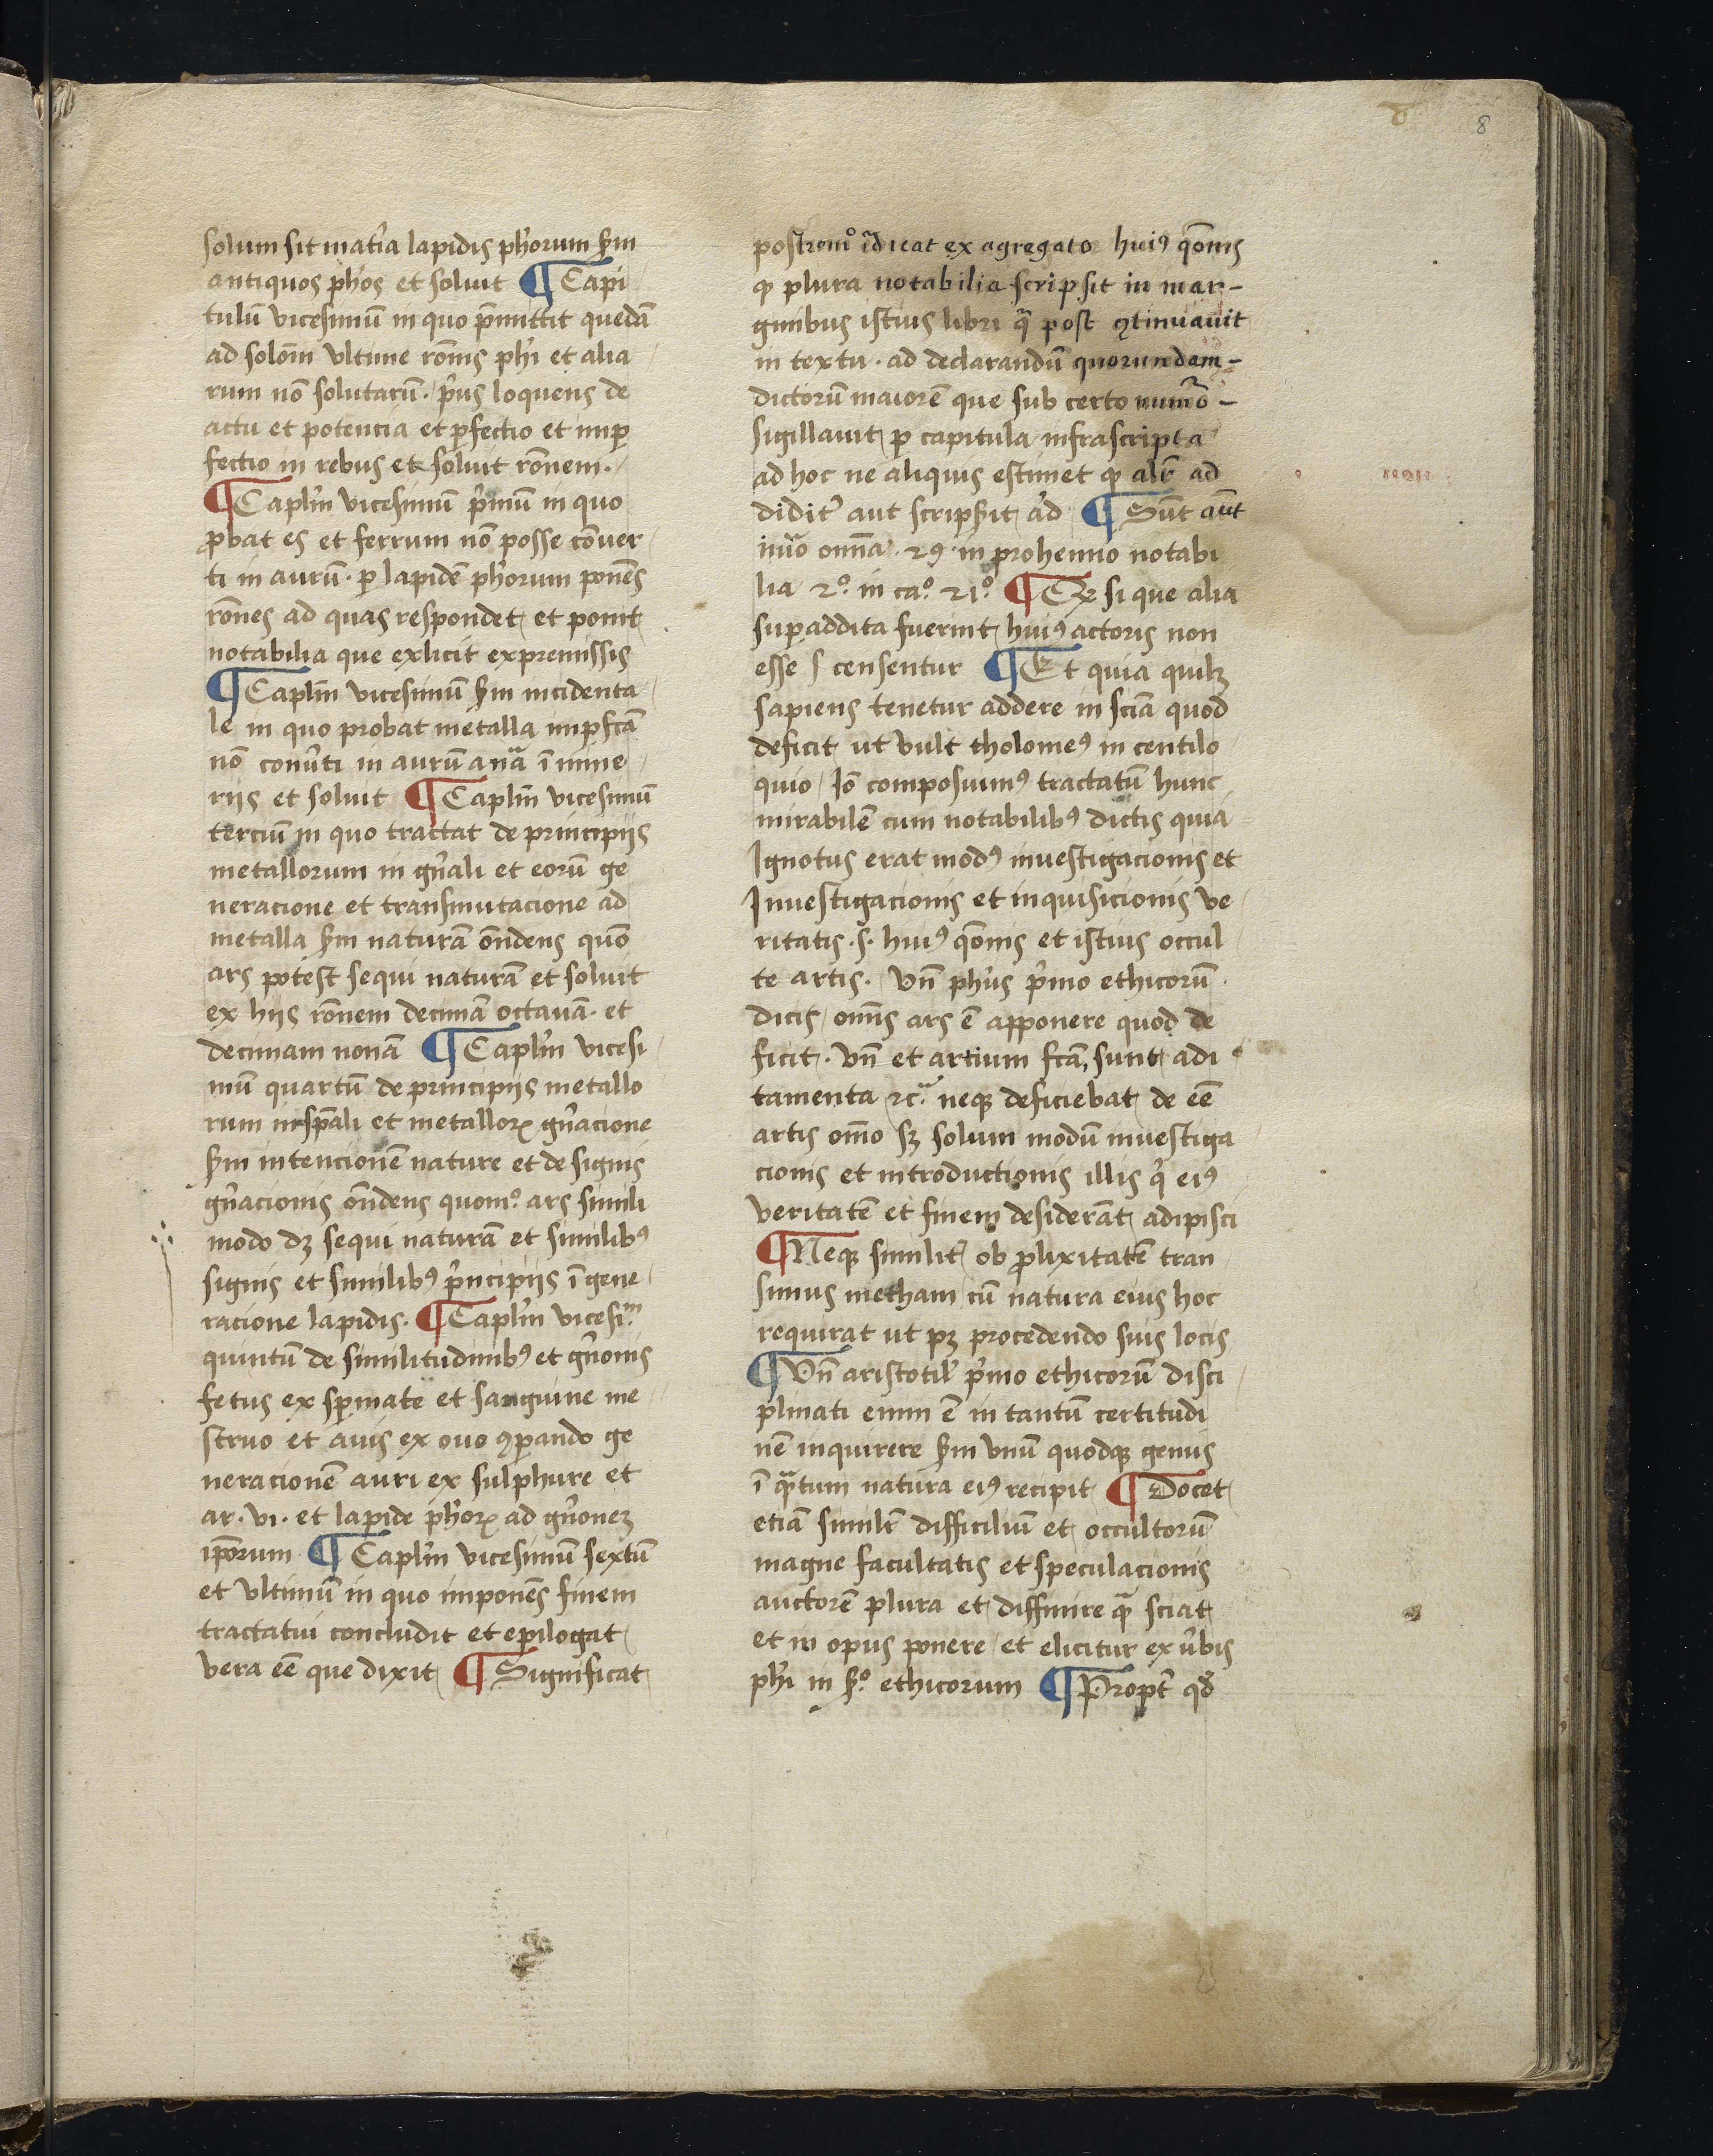 8
solum sit mat͛ia lapidis ph̄orum s̄m
antiquos ph̄os et soluit ¶ Capi
tulū vicesimū in quo p̄mittit quedā
ad solōm vltime rōnis ph̄i et alia
rum nō solutarū · p͛us loquens de
actu et potencia et ꝑfectio et imꝑ
fectio in rebus et soluit rōnem ·
¶ Capl̄m vicesimū p͛mū in quo
ꝓbat es et ferrum nō posse cōuer
ti in aurū · ꝑ lapidē ph̄orum ponēs
rōnes ad quas respondet et ponit
notabilia que exlicit expremissis
¶ Capl̄m vicesimū s̄m incidenta
le in quo probat metalla imꝑfcā
nō conu͛ti in aurū anā ī mine
riis et soluit ¶ Capl̄m vicesimū
terciū in quo tractat de principijs
metallorum in gn̄ali et eorū ge
neracione et transmutacione ad
metalla s̄m naturā ōndens quō
ars potest sequi naturā et soluit
ex hijs rōnem decimā octauā · et
decimam nonā ¶ Capl̄m vicesi
mū quartū de principijs metallo
rum insp̄ali et metalloꝝ gn̄acione
s̄m intencionē nature et de signis
gn̄acionis ōndens quomº ars simili
modo dꝫ sequi naturā et similibꝰ
signis et similibꝰ p͛ncipijs ī gene
racione lapidis · ¶ Capl̄m vicesiᵐ
quintū de similitudinibꝰ et gn̄onis
fetus ex spermate et sanguine me
struo et auis ex ouo ꝯꝑando ge
neracionē auri ex sulphure et
ar · vi · et lapide ph̄oꝝ ad gn̄onez
ip̄orum ¶ Capl̄m vicesimū sextū
et vltimū in quo imponēs finem
tractatui concludit et epilogat
vera eē que dixit ¶ Significat
postremº īdicat ex agregato huiꝰ qōnis
ꝙ plura notabilia scripsit in mar-
ginibus istius libri q̄ post ꝯtinuauit
in textu · ad declarandū quorundam-
dictorū maiorē que sub certo num̄o-
sigillauit ꝑ capitula infrascripta
ad hoc ne aliquis estimet ꝙ alr̄ ad
didit͛ aut scripsit ad ¶ Sūt aūt
in omnia · 29 · in prohemio notabi
lia 2º · in caº · 21º ¶ Et si que alia
suꝑaddita fuerint huiꝰ actoris non
esse censentur ¶ Et quia quilꝫ
sapiens tenetur addere in sciā quod
deficit ut vult tholomeꝰ in centilo
quio Iō composuimꝰ tractatū hunc
mirabilē cum notabilibꝰ dictis quia
Ignotus erat modꝰ inuestigacionis et
Inuestigacionis et inquisicionis ve
ritatis · s · huiꝰ qōnis et istius occul
te artis · Vn̄ ph̄us p͛mo ethicorū
dicit omīs ars ē apponere quod de
ficit · vn̄ et artium fcā sunt adi
tamenta ⁊cᵃ neqꝫ deficiebat de eē
artis om̄o sꝫ solum modū inuestiga
cionis et introductionis illis q͛ eiꝰ
veritatē et finem desiderāt adipisci
¶ Neqꝫ similit͛ ob ꝓlixitatē tran
simus metham cū natura eius hoc
requirat ut pꝫ procedendo suis locis
¶ Vn̄ aristotil͛ p͛mo ethicorū disci
plinati enim ē in tantū certitudi
nē inquirere s̄m vnū quodqꝫ genus
ī q̄tum natura eiꝰ recipit ¶ Docet
etiā similr̄ difficiliū et occultorū
magne facultatis et speculacionis
auctorē plura et diffinire q̄ sciat
et in opus ponere et elicitur ex v͛bis
ph̄i in sº ethicorum ¶ Propt͛ qđ